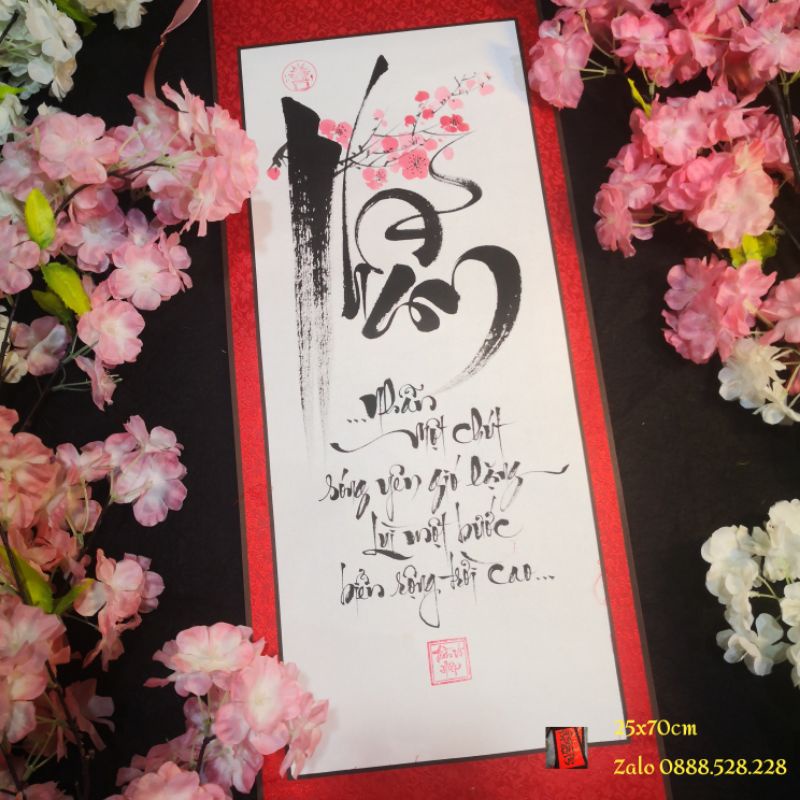 Nhẫn
...Nhẫn
Một chút
sóng yên gió lặng
Lùi một bước
biển rộng, trời cao...
25x70cm
Zalo 0888.528.228